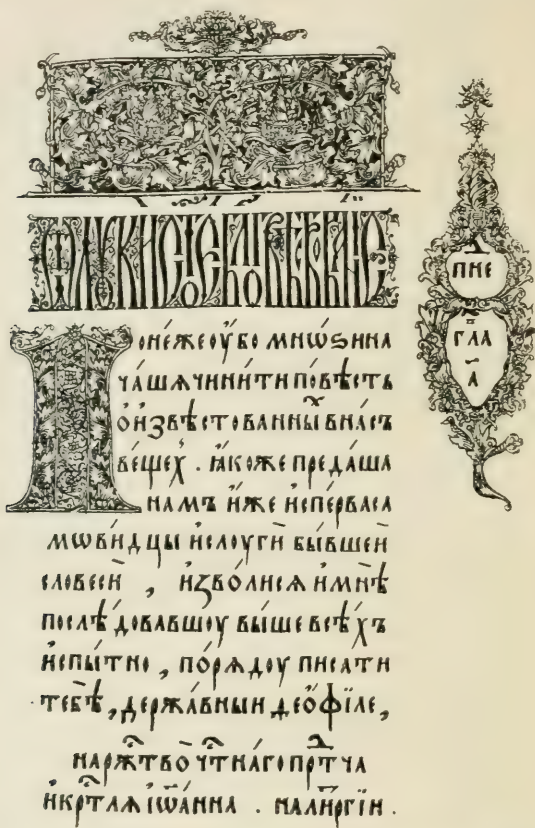 Ѿ лꙋки ст҃ое бл҃говѣствованїе
Поне́жеоу҆́бо мнѡ́ѕина
ча́шѧ чини́ти по́вѣсть
ѡ҆и҆звѣ́стованныⷯ внⷶсъ
ве́щеⷯ. ꙗ҆́коже преда́ша
намъ и҆́же и҆спе́рваса
мови́дцы и҆слоуги҆̀ бы́вшеи
словесѝ, и҆зво́лисѧ и҆мнѣ̀
послѣ́довавшоу вы́ше всѣ́хъ
и҆спы́тно, по́рѧдоу писа́ти
тебѣ̀, держа́вныи ѳео҆́фїле,
на рж҇тво̀ чтⷭ҇на́го прⷣтⷱ҇а
и҆ крⷭ҇тлѧ і҆ѡа́нна. на лиⷮргїи.
пне
гла
а